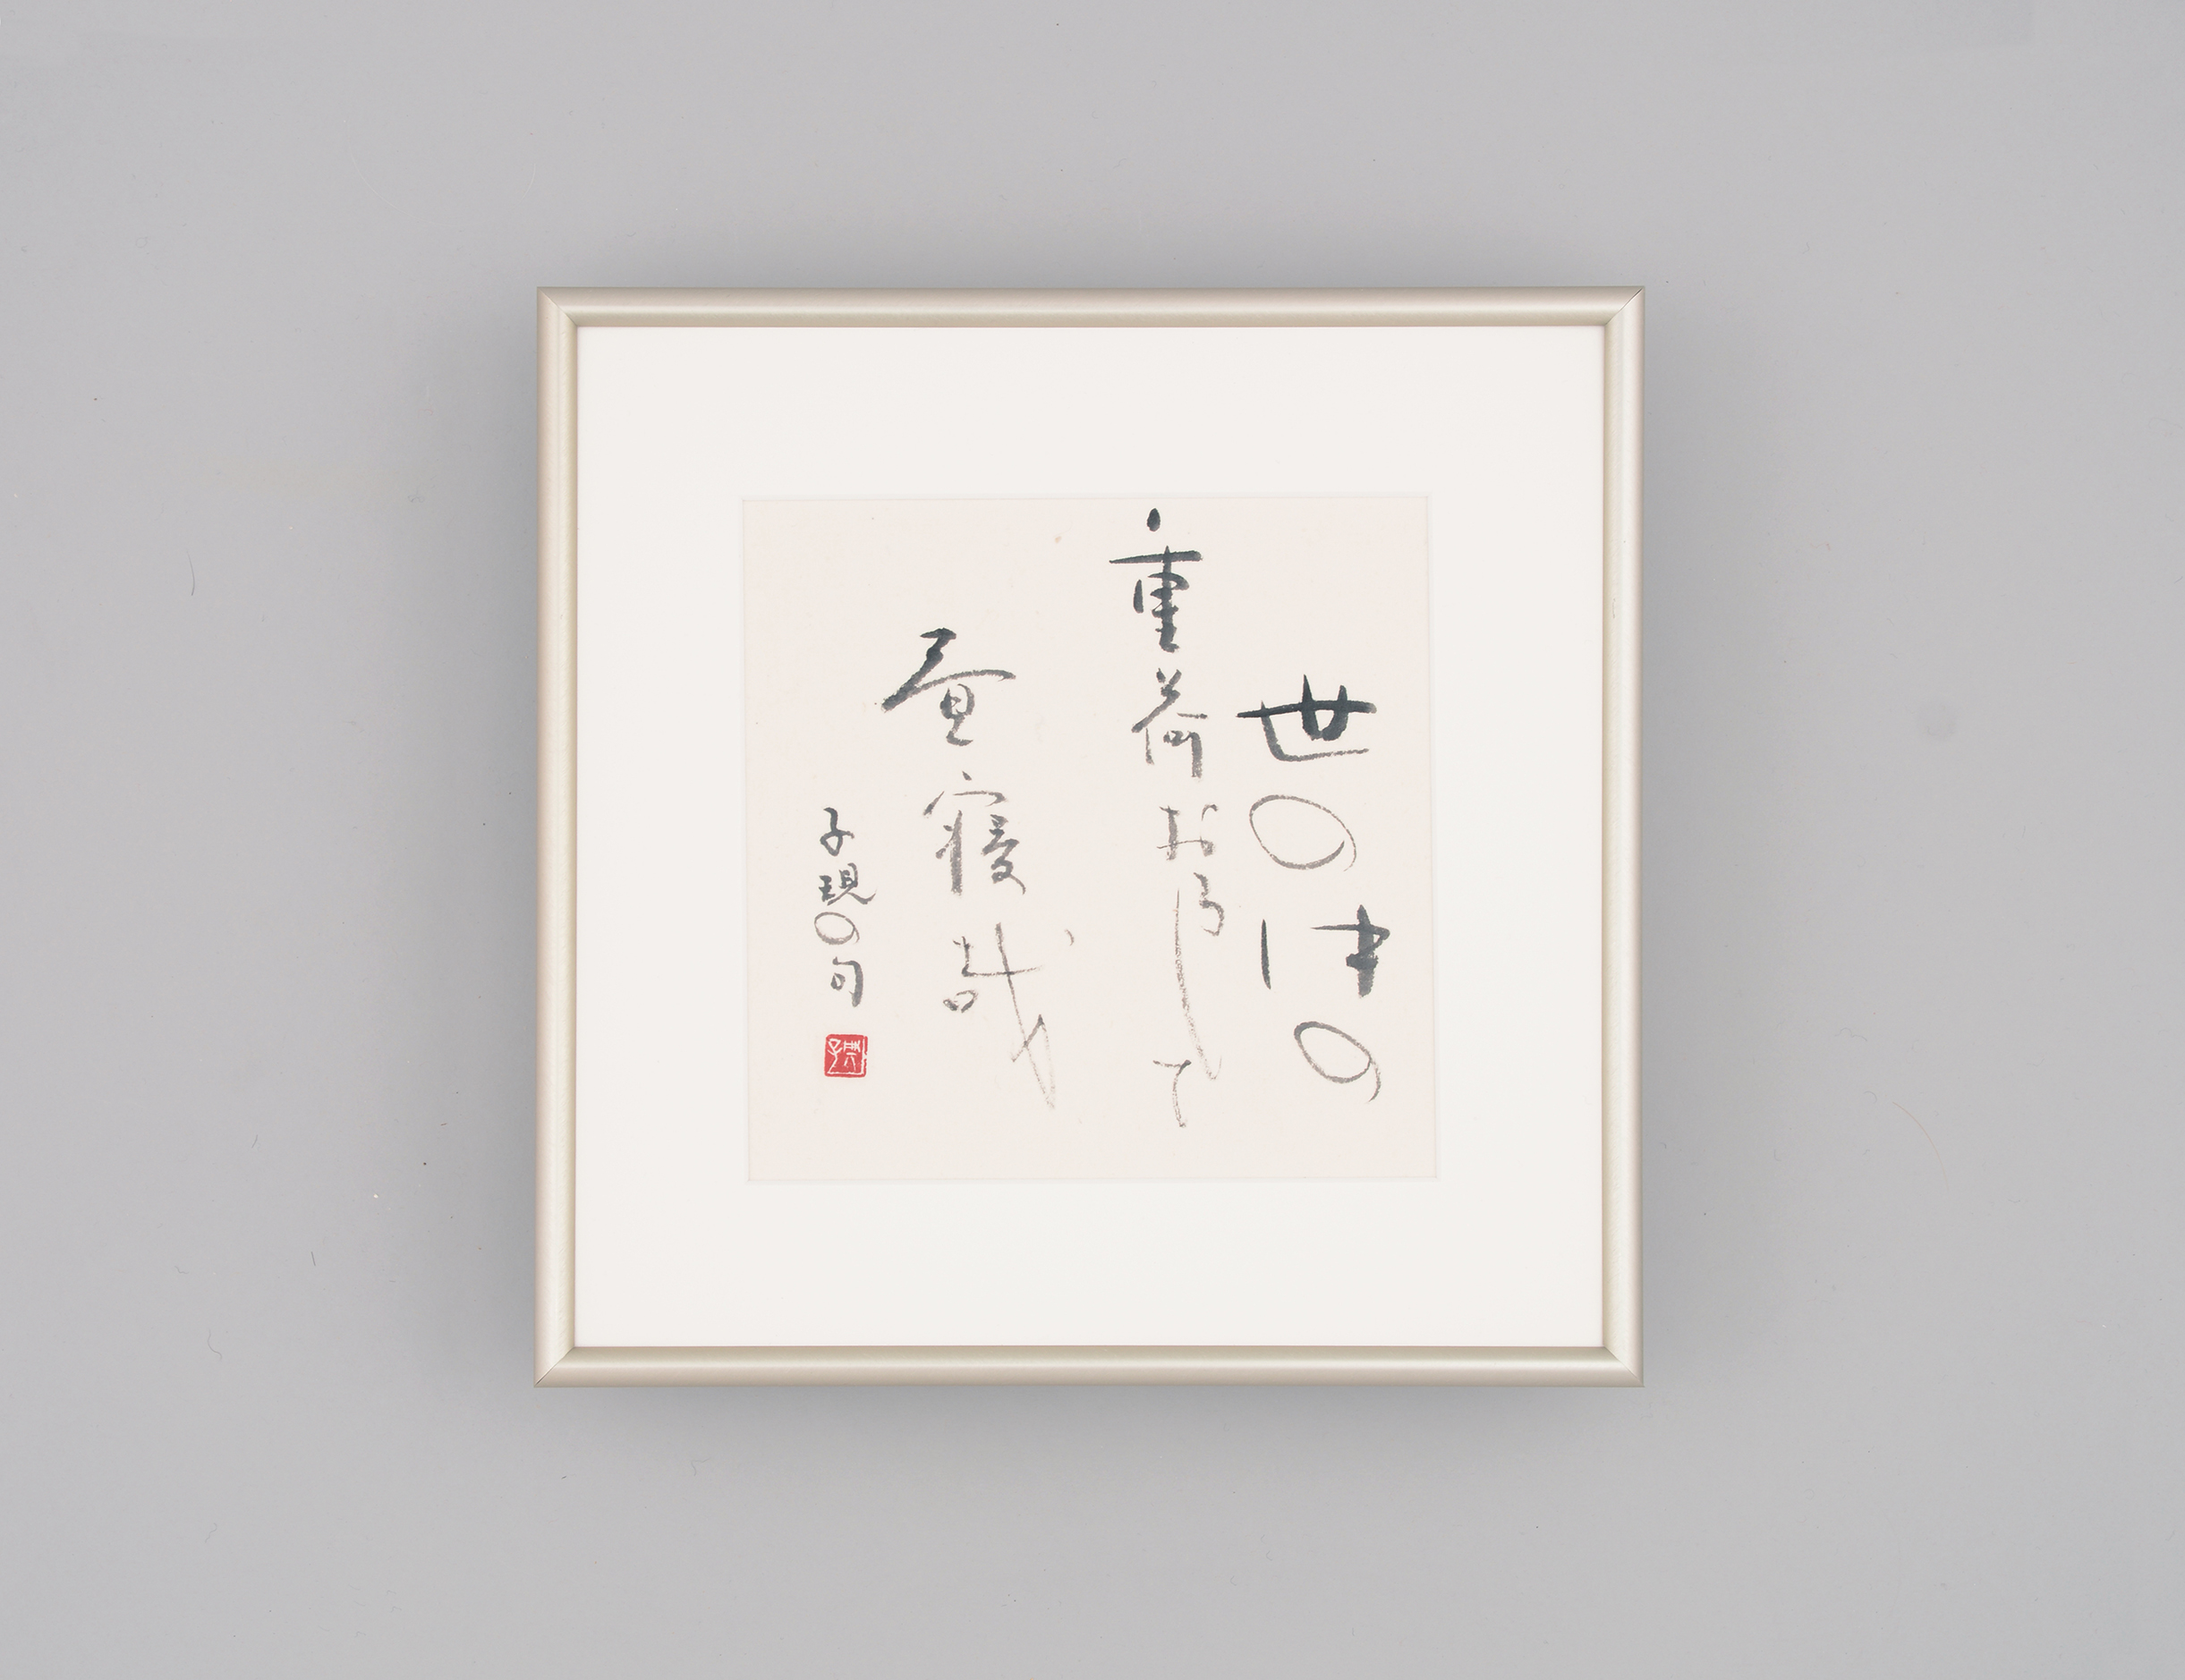 世の中の
重荷おろして
昼寝哉
子規の句